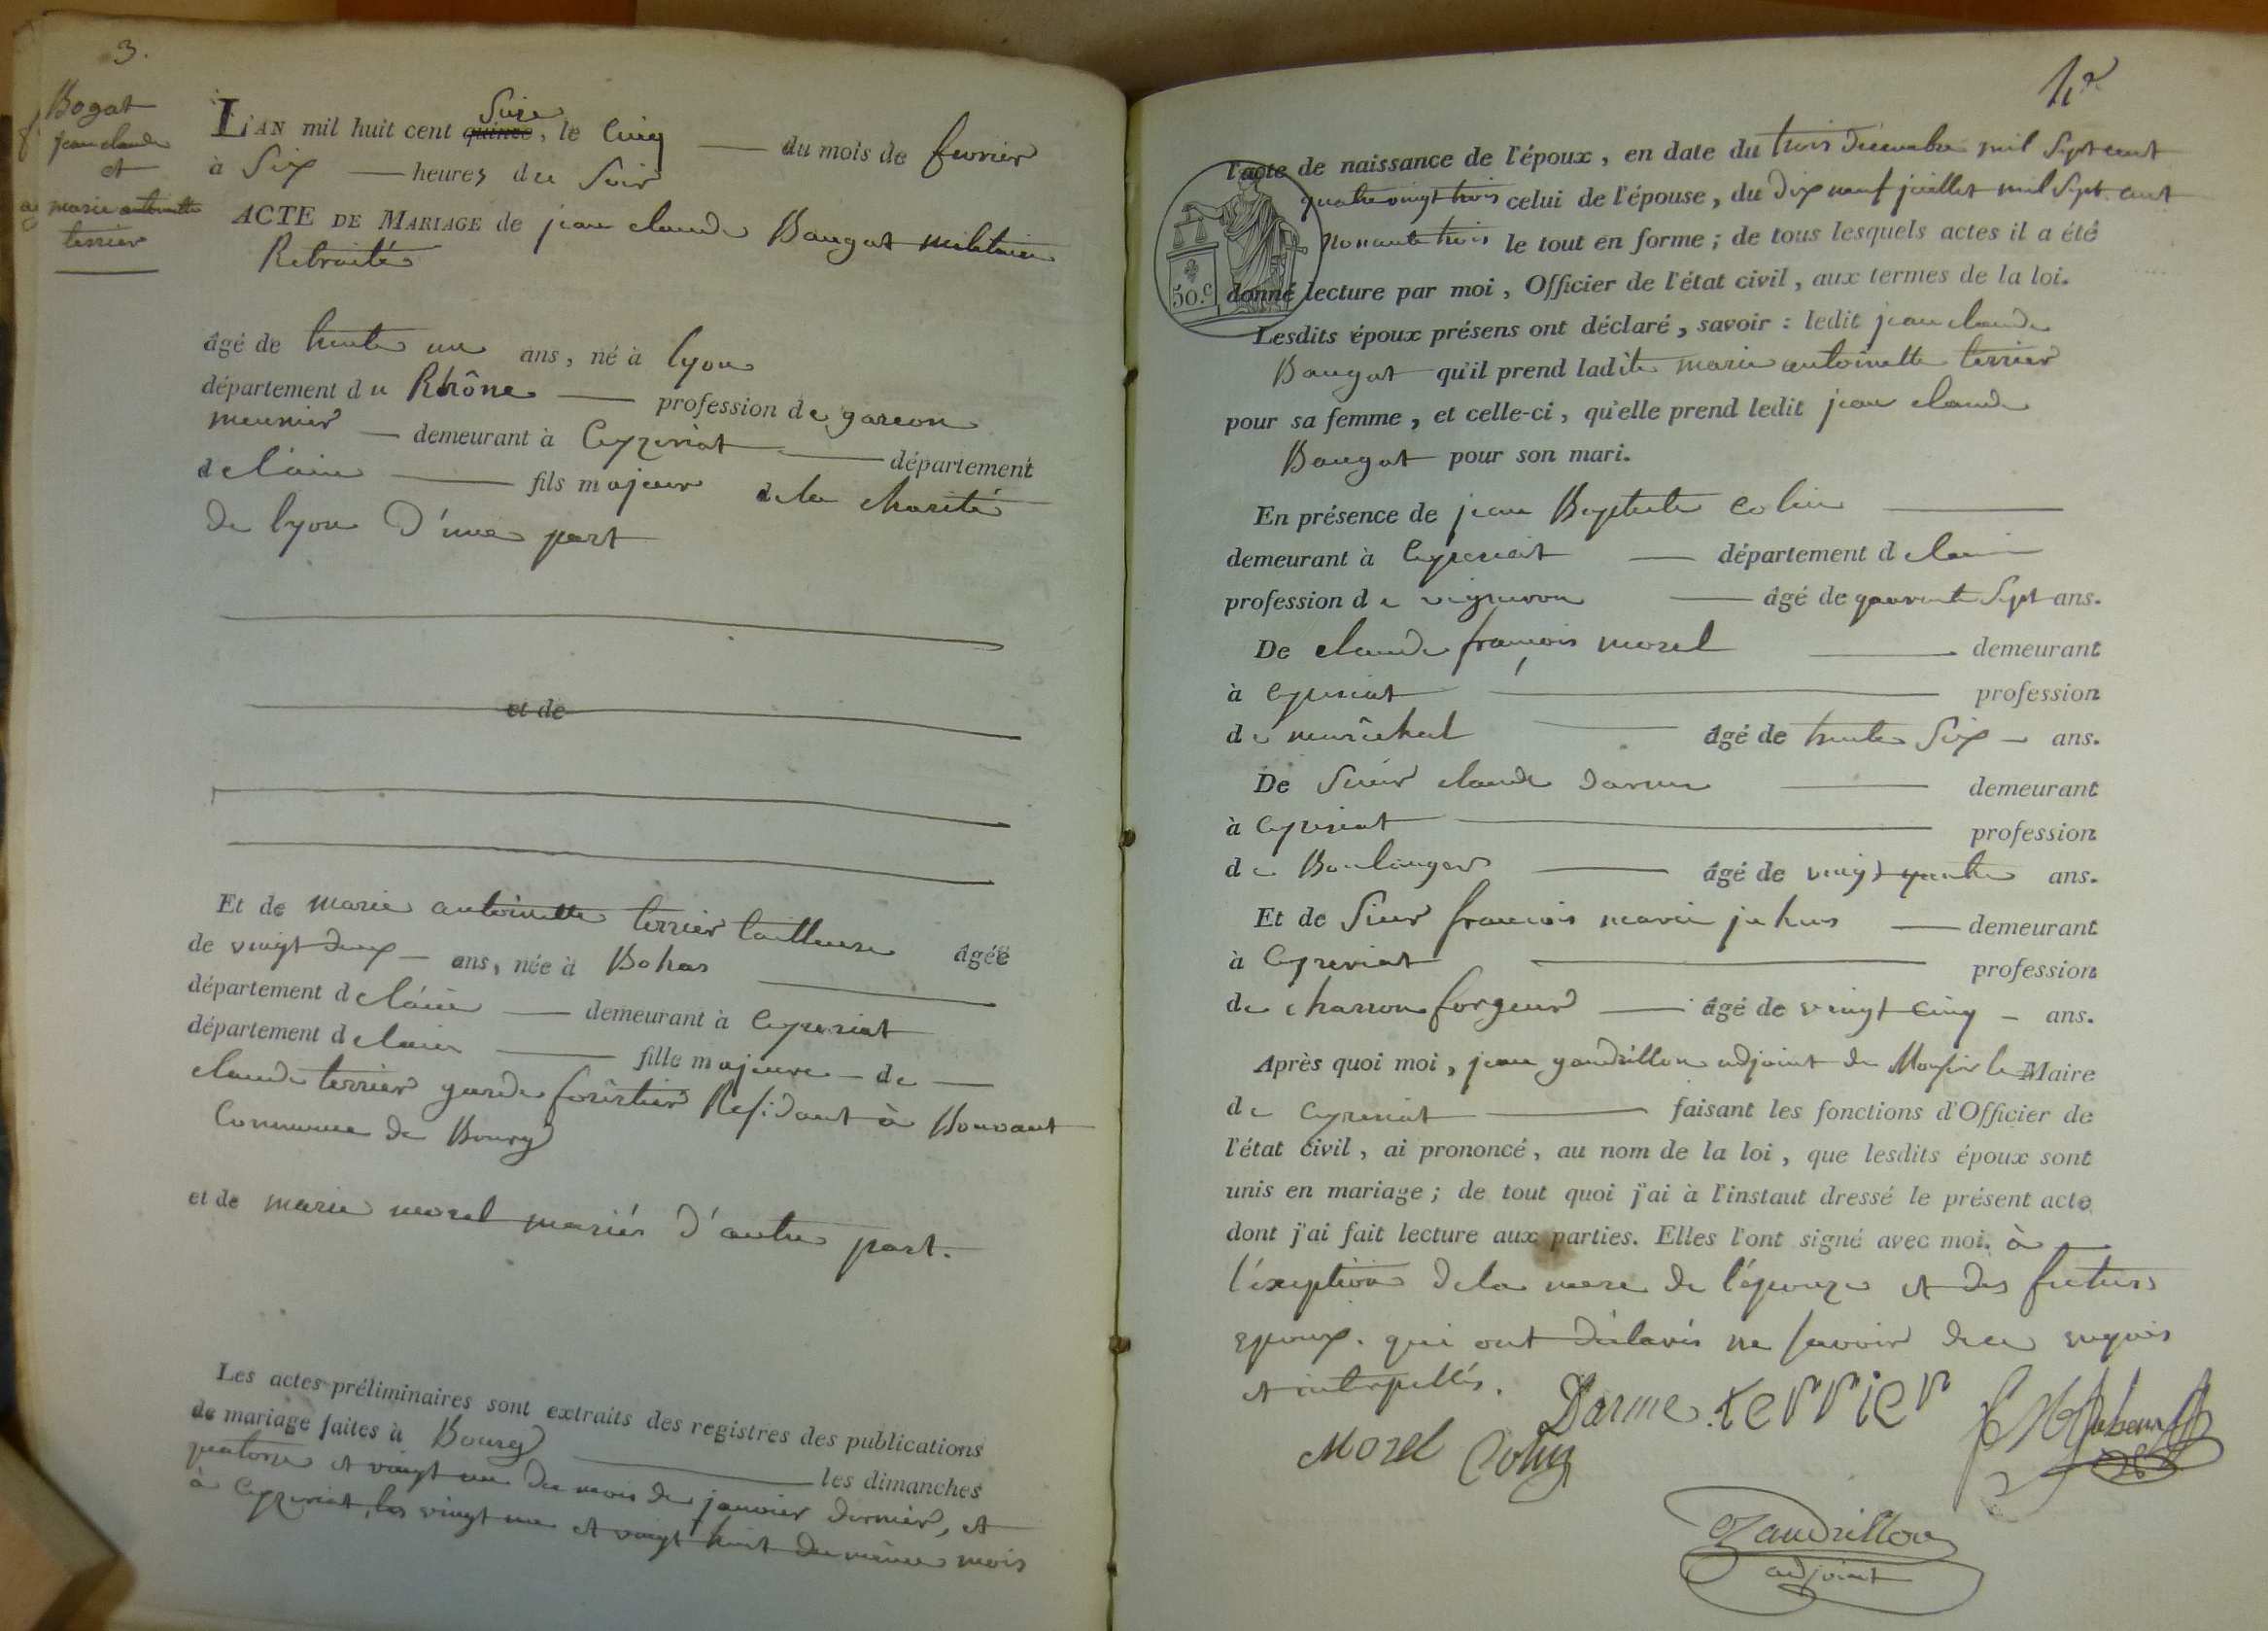 3.
Bogat
jean claude
et
marie antoinette
terrier
Seize
L'AN mil huit cent quinze, le Cinq du mois de fevrier
à Six heures du Soir
ACTE DE MARIAGE de jean claude Baugat militaire
Retraité
âgé de trente un ans, né à lyon
département du Rhône profession de garcon
meunier demeurant à Ceyzeriat département
de l'ain fils majeur de la charité
de lyon D'une part
et de
Et de marie antoinette terrier tailleuse âgée
de vingt deux ans, née à Bohas
département de l'ain demeurant à Ceyzeriat
département de l'ain fille majeure de
claude terrier garde forêstier Résidant à Bouvant
Commune de Bourg
et de marie morel mariés d'autre part.
Les actes préliminaires sont extraits des registres des publications
de mariage faites à Bourg les dimanches
quatorze et vingt un du mois de janvier dernier, et
à Ceyzeriat, les vingt un et vingt huit du même mois
l'acte de naissance de l'époux, en date du trois decembre mil Sept cent
quatre vingt trois celui de l'épouse, du Dix neuf juillet mil Sept cent
nonante trois le tout en forme ; de tous lesquels actes il a été
50.c donné lecture par moi, Officier de l'état civil, aux termes de la loi.
Lesdits époux présens ont déclaré, savoir : ledit jean claude
Baugat qu'il prend ladite marie antoinette terrier
pour sa femme, et celle-ci, qu'elle prend ledit jean claude
Baugat pour son mari.
En présence de jean Baptiste Colin
demeurant à Ceyzeriat département de l'ain
profession de vigneron âgé de quarante Sept ans.
De claude françois morel demeurant
à Ceyzeriat profession
de marêchal âgé de trente Six ans.
De Sieur claude Darme demeurant
à Ceyzeriat profession
de Boulanger âgé de vingt quatre ans.
Et de Sieur francois marie demeurant
à Ceyzeriat profession
de charron forgeur âgé de vingt cinq ans.
Après quoi moi, jean gaudrillon adjoint de Monsieur le Maire
de Ceyzeriat faisant les fonctions d'Officier de
l'état civil, ai prononcé, au nom de la loi, que lesdits époux sont
unis en mariage ; de tout quoi j'ai à l'instant dressé le présent acte
dont j'ai fait lecture aux parties. Elles l'ont signé avec moi. à
l'éxeption de la mere de l'épouze et des futurs
epoux. qui ont déclarés ne savoir de ce enquis
et interpellés.
Darme terrier
Morel Colin
Gaudrillon
adjoint